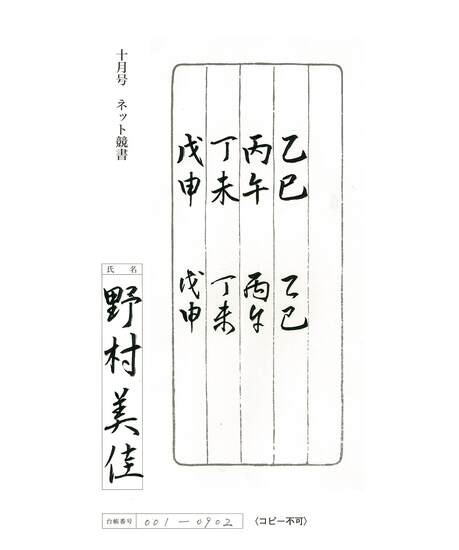 乙巳 乙巳
丙午 丙午
丁未 丁未
戊申 戊申
十月号 ネット競書
氏名
野村美佳
台帳番号 001-0902 〈コピー不可〉